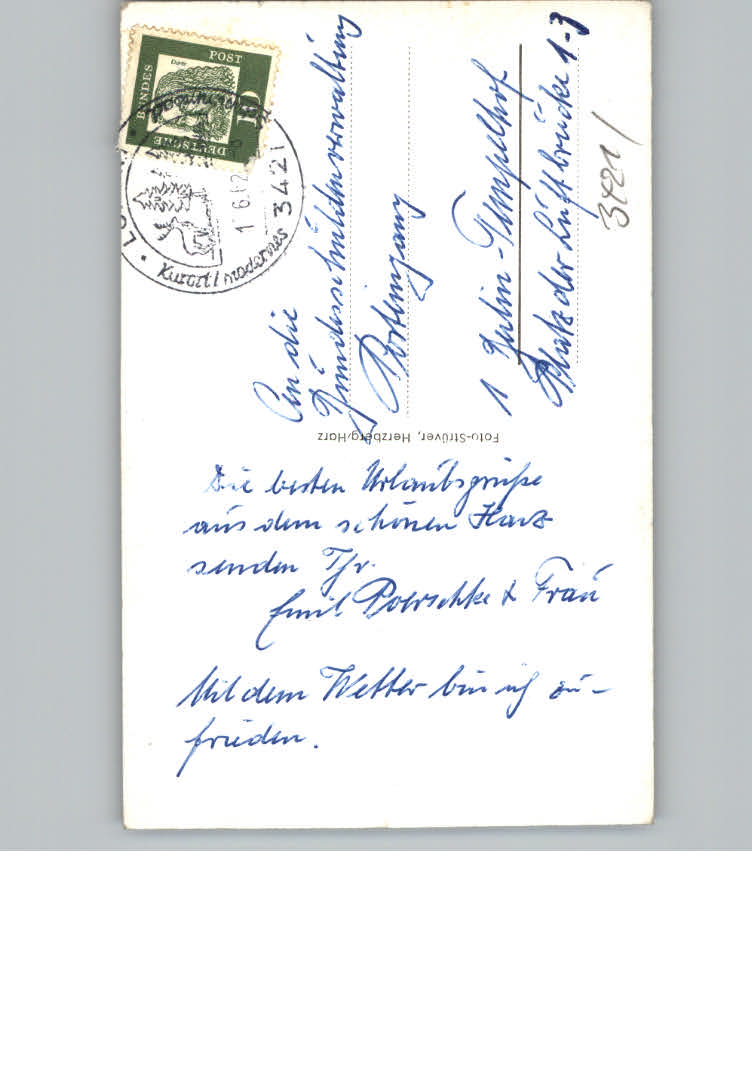 Die besten Urlaubsgrüße
aus dem schönen Harz
senden Ihr.
Emil Poerschke & Frau
Mit dem Wetter bin ich zu-
frieden.
Foto-Strüver, Herzberg/Harz
An die
Bundesschuldenverwaltung
Posteingang
1 Berlin-Tempelhof
Platz der Luftbrücke 1-3
3421/
DEUTSCHE
BUNDES
POST
10
3421
Kurort/modernes
1.6.62